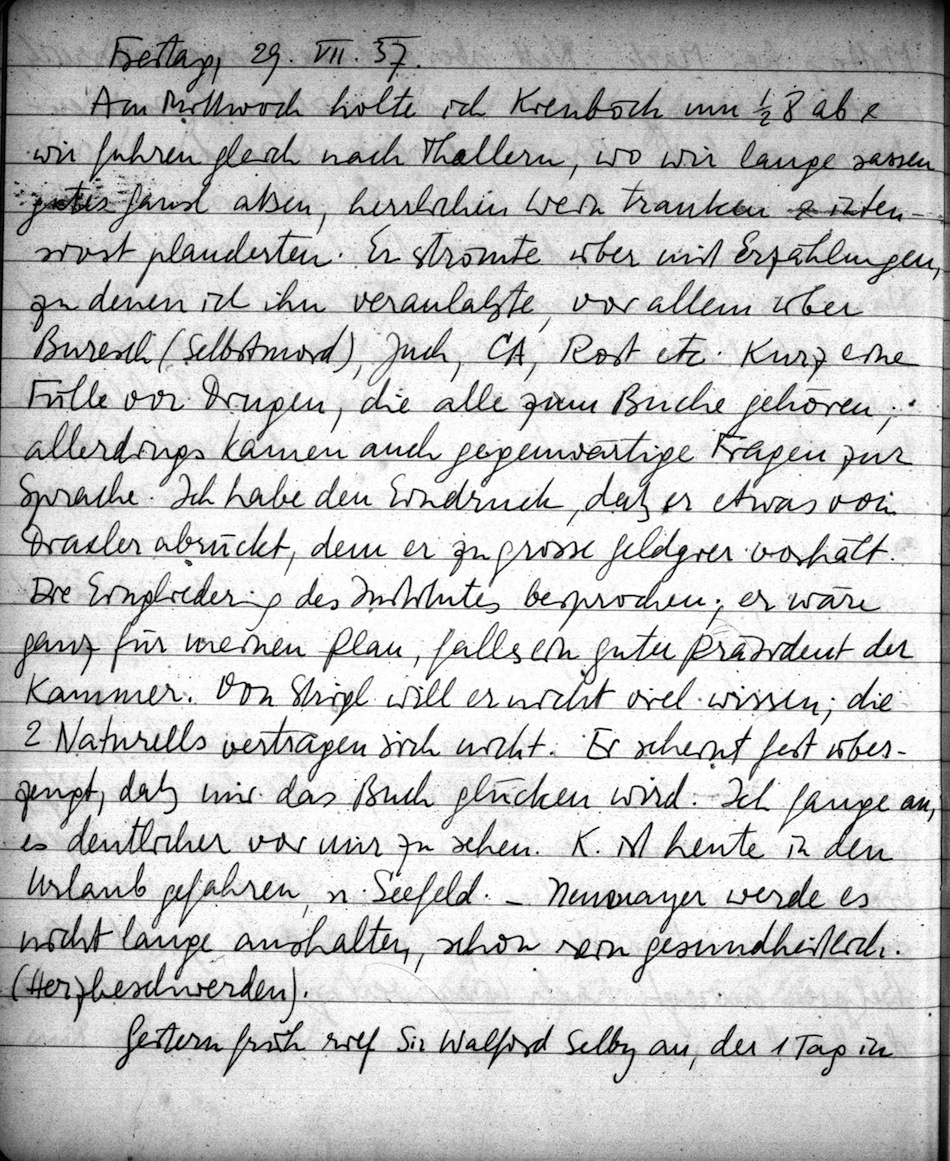 Freitag, 29. VII. 37.
Am Mittwoch holte ich Kienböck um ½ 8 ab &
wir fuhren gleich nach Thallern, wo wir lange sassen
gutes Gansl assen, herrlichen Wein tranken & inten-
sivst plauderten. Er strömte über mit Erzählungen,
zu denen ich ihn veranlasste, vor allem über
Buresch (Selbstmord), Juch, CA, Rost etc. Kurz eine
Fülle von Dingen, die alle zum Buche gehören;
allerdings kamen auch gegenwärtige Fragen zur
Sprache. Ich habe den Eindruck, daß er etwas von
Draxler abrückt, dem er zu grosse Geldgier vorhält.
Die Eingliederung des Institutes besprochen; er wäre
ganz für meinen Plan, falls ein guter Präsident der
Kammer. Von Strigl will er nicht viel wissen; die
2 Naturells vertragen sich nicht. Er scheint fest über-
zeugt, daß mir das Buch glücken wird. Ich fange an,
es deutlicher vor mir zu sehen. K. ist heute in den
Urlaub gefahren, n. Seefeld. – Neumayer werde es
nicht lange aushalten, schon rein gesundheitlich.
(Herzbeschwerden).
Gestern früh rief Sir Walford Selby an, der 1 Tag in